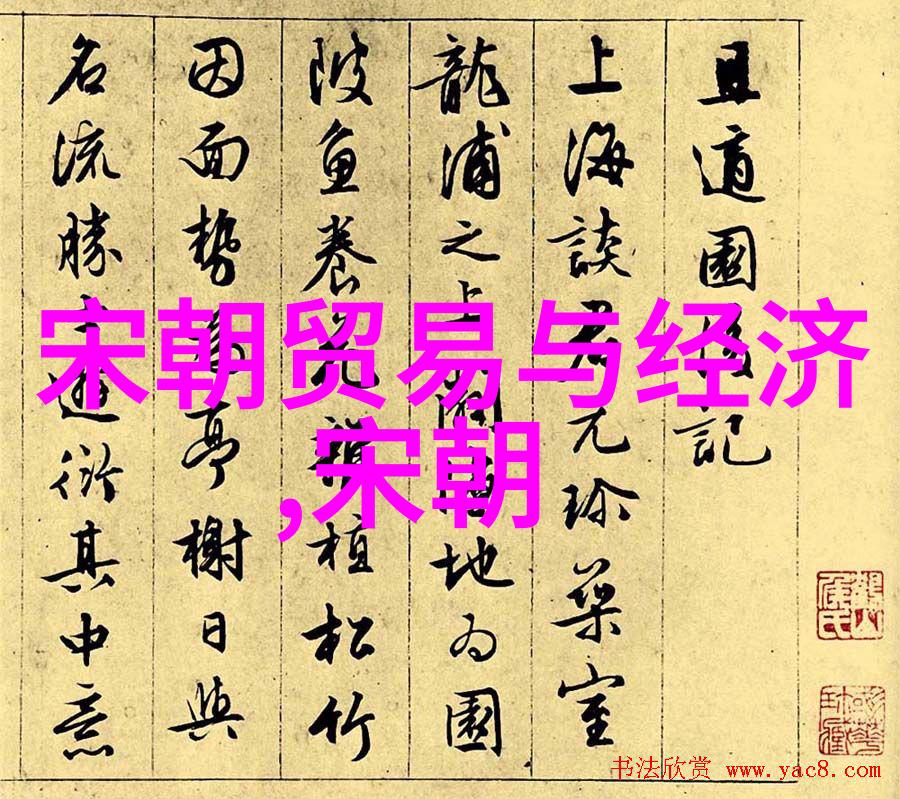 且適園後記
上海談君元珍築室
龍浦之上地为園
陂魚養花植松竹
因面勢為亭榭日與
名流勝士遊衍其中意
宋朝贸易与经济
,宋朝
书法欣赏 www.yac8.com